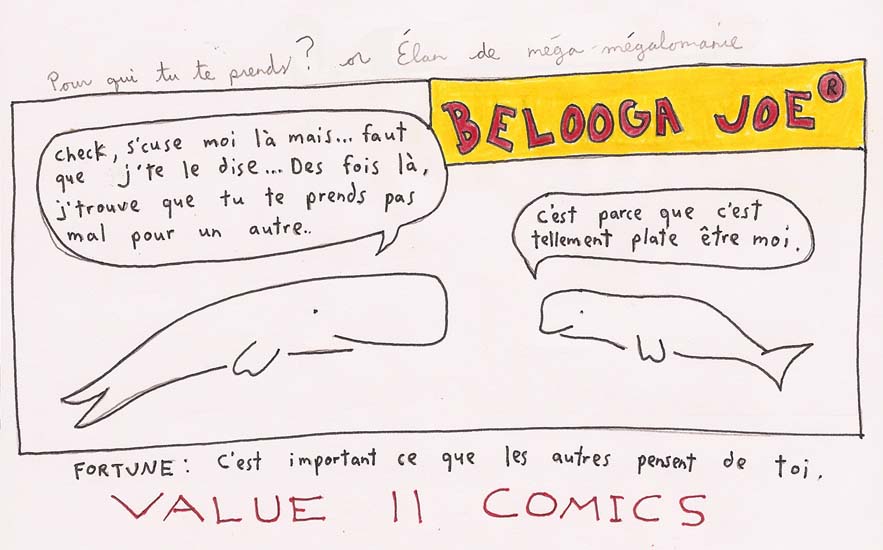 Pour qui tu te prends? or Élan de méga-mégalomanie
BELOOGA JOE ®
check, s'cuse moi là mais... faut
que j'te le dise... Des fois là,
j'trouve que tu te prends pas
mal pour un autre..
c'est parce que c'est
tellement plate être moi.
FORTUNE: C'est important ce que les autres pensent de toi.
VALUE II COMICS